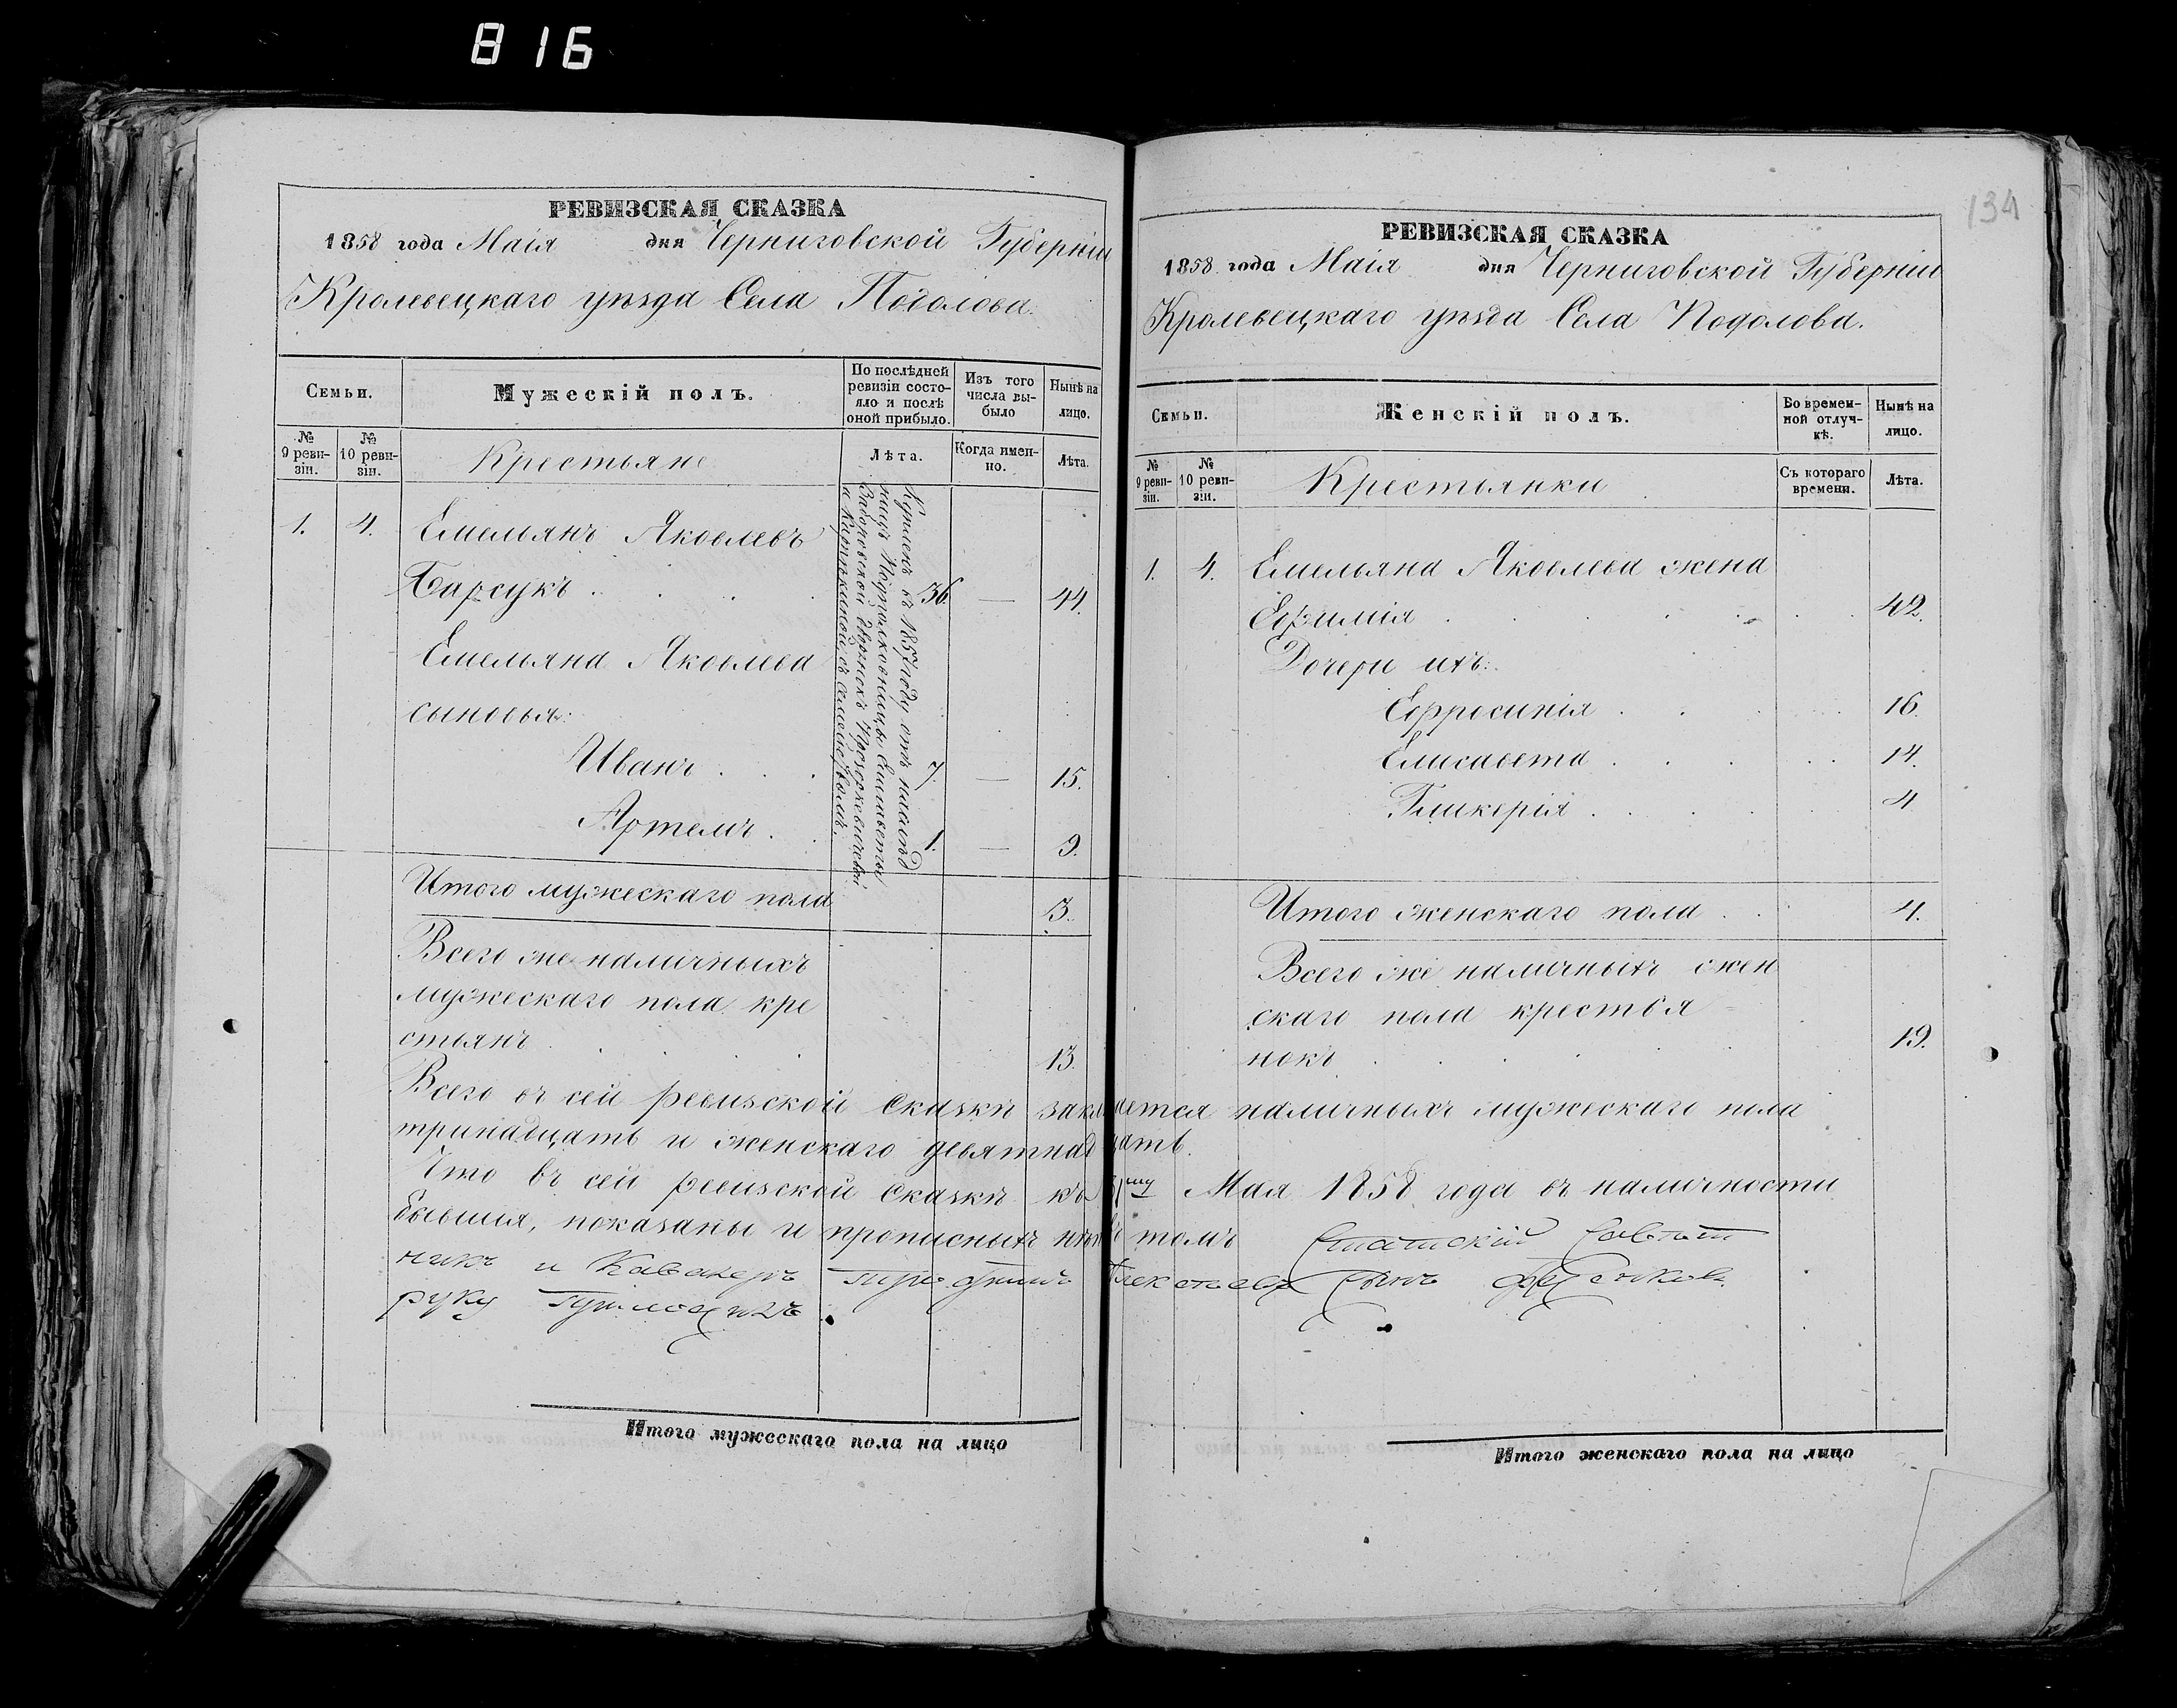 816
РЕВИЗСКАЯ СКАЗКА
1858 года Маія дня Черниговской Губерніи
Кролевецкаго уѣзда Села Подолова.
Семьи.
Мужескій полъ.
По послѣдней ревизіи состояло и послѣ оной прибыло.
Изъ того числа выбыло
Нынѣ на лицо.
№ 9 ревизіи.
№ 10 ревизіи.
Крестьяне
Лѣта.
Когда именно.
Лѣта.
Купленъ въ 1857 году отъ наслѣд
ницъ Елисаветы
а съ семействомъ.
1. 4. Емельянъ Яковлевъ
Барсукъ . . . 36. — 44.
Емельяна Яковлева
сыновья:
Иванъ . . . 7. — 15.
Артемъ . . 1. — 9.
Итого мужескаго пола 3.
Всего же наличныхъ
мужескаго пола кре
стьянъ . . . . 13.
134
РЕВИЗСКАЯ СКАЗКА
1858 года Маія дня Черниговской Губерніи
Кролевецкаго уѣзда Села Подолова.
Семьи.
Женскій полъ.
Во временной отлучкѣ.
Нынѣ на лицо.
№ 9 ревизіи.
№ 10 ревизіи.
Крестьянки
Съ котораго времени.
Лѣта.
1. 4. Емельяна Яковлева жена
Ефимія . . . . 42.
Дочери ихъ:
Ефросинія . . . 16.
Елисавета . . . 14.
Гликерія . . . 4
Итого женскаго пола . . 4.
Всего же наличныхъ жен
скаго пола крестья
нокъ . . . . 19.
Всего въ сей ревизской Сказкѣ наличныхъ мужескаго пола
тринадцать и женскаго девятнадцать.
Что въ сей ревизской Сказкѣ къ му Мая 1858 года въ наличности
бывшія, показаны и прописныхъ нѣтъ въ томъ Статскій Совѣт
никъ и Кавалеръ Алексѣевъ Сынъ
руку приложилъ.
Итого мужескаго пола на лицо
Итого женскаго пола на лицо